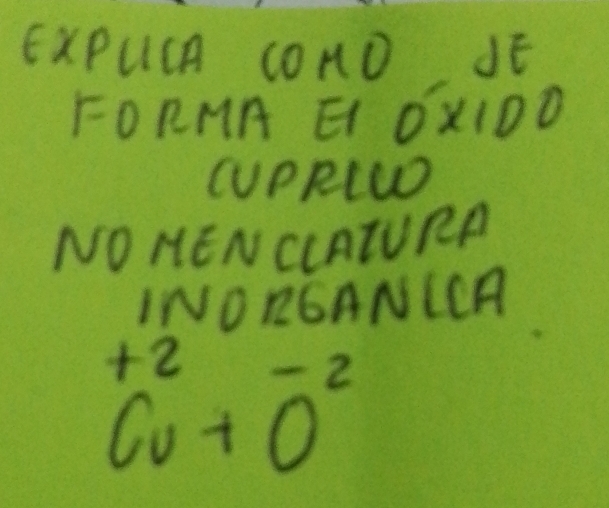 EXPLICA COMO SE
FORMA El ÓXIDO
CUPRICO
NOMENCLATURA
INORGANICA
+2 -2
Cu + O